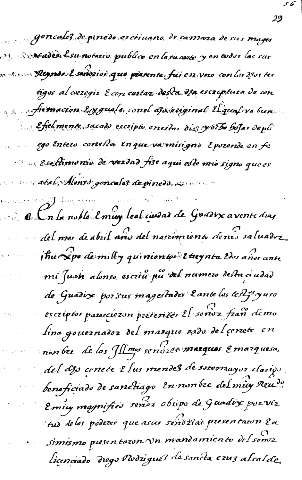 56
29
gonçales de pinedo escriuano de camara de sus mages
tades E su notario publico en la su corte y en todos los sus
Reynos E señorios que presente fui en vno con los dhos tes
tigos al corregir E con certar desta dha escreptura de con
firmacion E yguala, con el dho original El qual va bien
E fielmente sacado escripto en estas diez y ocho hojas de pli
ego Entero con esta En que va mi signo E por ende en fe
E testimonio de verdad fize aqui este mio signo ques
a tal, Alonso gonçales de pinedo.
En la noble E muy leal ciudad de Guadix a veynte dias
del mes de abril año del nascimiento de nro saluador
ihu xpo de mill y quinientos E treynta E dos años ante
mi Juan alonso, escriuº puº del numero desta çiudad
de Guadix por sus magestades E ante los testigos yuso
escriptos parescieron presentes El señor franco de mo
lina gouernador del marquesado del çenete en
nombre de los Illmos señores marques E marquesa
del dho çenete E luis mendes de sotomayor clerigo
beneficiado de santhiago En nombre del muy Reudo
E muy magnifico señor obispo de Guadix por vir
tud de los poderes que a sus señorias presentaron E a
simismo presentaron vn mandamiento del señor
licenciado diego Rodrigues de sancta cruz alcalde